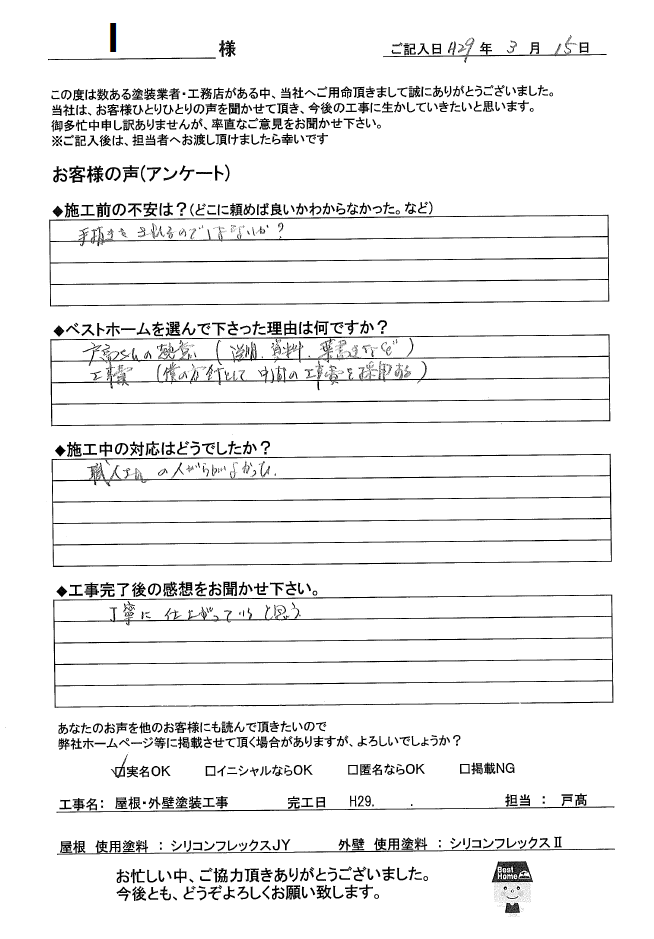 I 様 ご記入日 H29 年 3 月 15 日
この度は数ある塗装業者・工務店がある中、当社へご用命頂きまして誠にありがとうございました。
当社は、お客様ひとりひとりの声を聞かせて頂き、今後の工事に生かしていきたいと思います。
御多忙中申し訳ありませんが、率直なご意見をお聞かせ下さい。
※ご記入後は、担当者へお渡し頂けましたら幸いです
お客様の声(アンケート)
◆施工前の不安は?(どこに頼めば良いかわからなかった。など)
手抜きをされるのではないか?
◆ベストホームを選んで下さった理由は何ですか?
戸高さんの熱意 (説明、資料、葉書きなど)
工事費 (僕の方針として 中間の工事費を採用する)
◆施工中の対応はどうでしたか?
職人さん の人がらがよかった.
◆工事完了後の感想をお聞かせ下さい。
丁寧に 仕上がっていると思う
あなたのお声を他のお客様にも読んで頂きたいので
弊社ホームページ等に掲載させて頂く場合がありますが、よろしいでしょうか?
☑実名OK □イニシャルならOK □匿名ならOK □掲載NG
工事名: 屋根・外壁塗装工事 完工日 H29. . 担当 : 戸髙
屋根 使用塗料 : シリコンフレックスJY 外壁 使用塗料 : シリコンフレックスⅡ
お忙しい中、ご協力頂きありがとうございました。
今後とも、どうぞよろしくお願い致します。
Best
Home